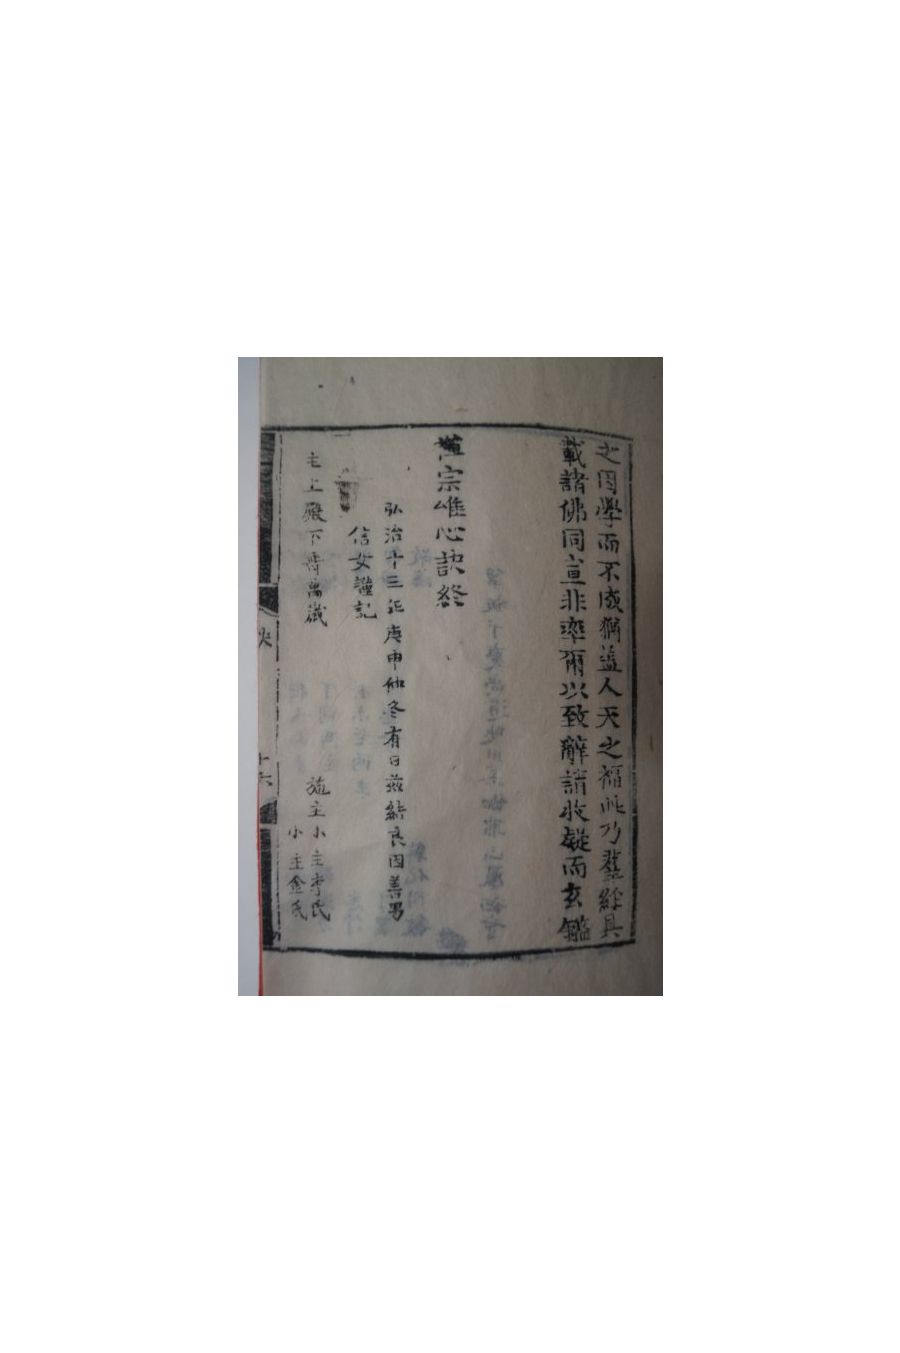 之因學而不成猶益人天之福此乃群經具
載諸佛同宣非率爾以致辭請收疑而玄鑑
宗唯心訣終
弘治十三年庚申仲冬有日玆結良因善男
信女謹記
主上殿下壽萬歲
施主小主李氏
小主金氏
决
十六